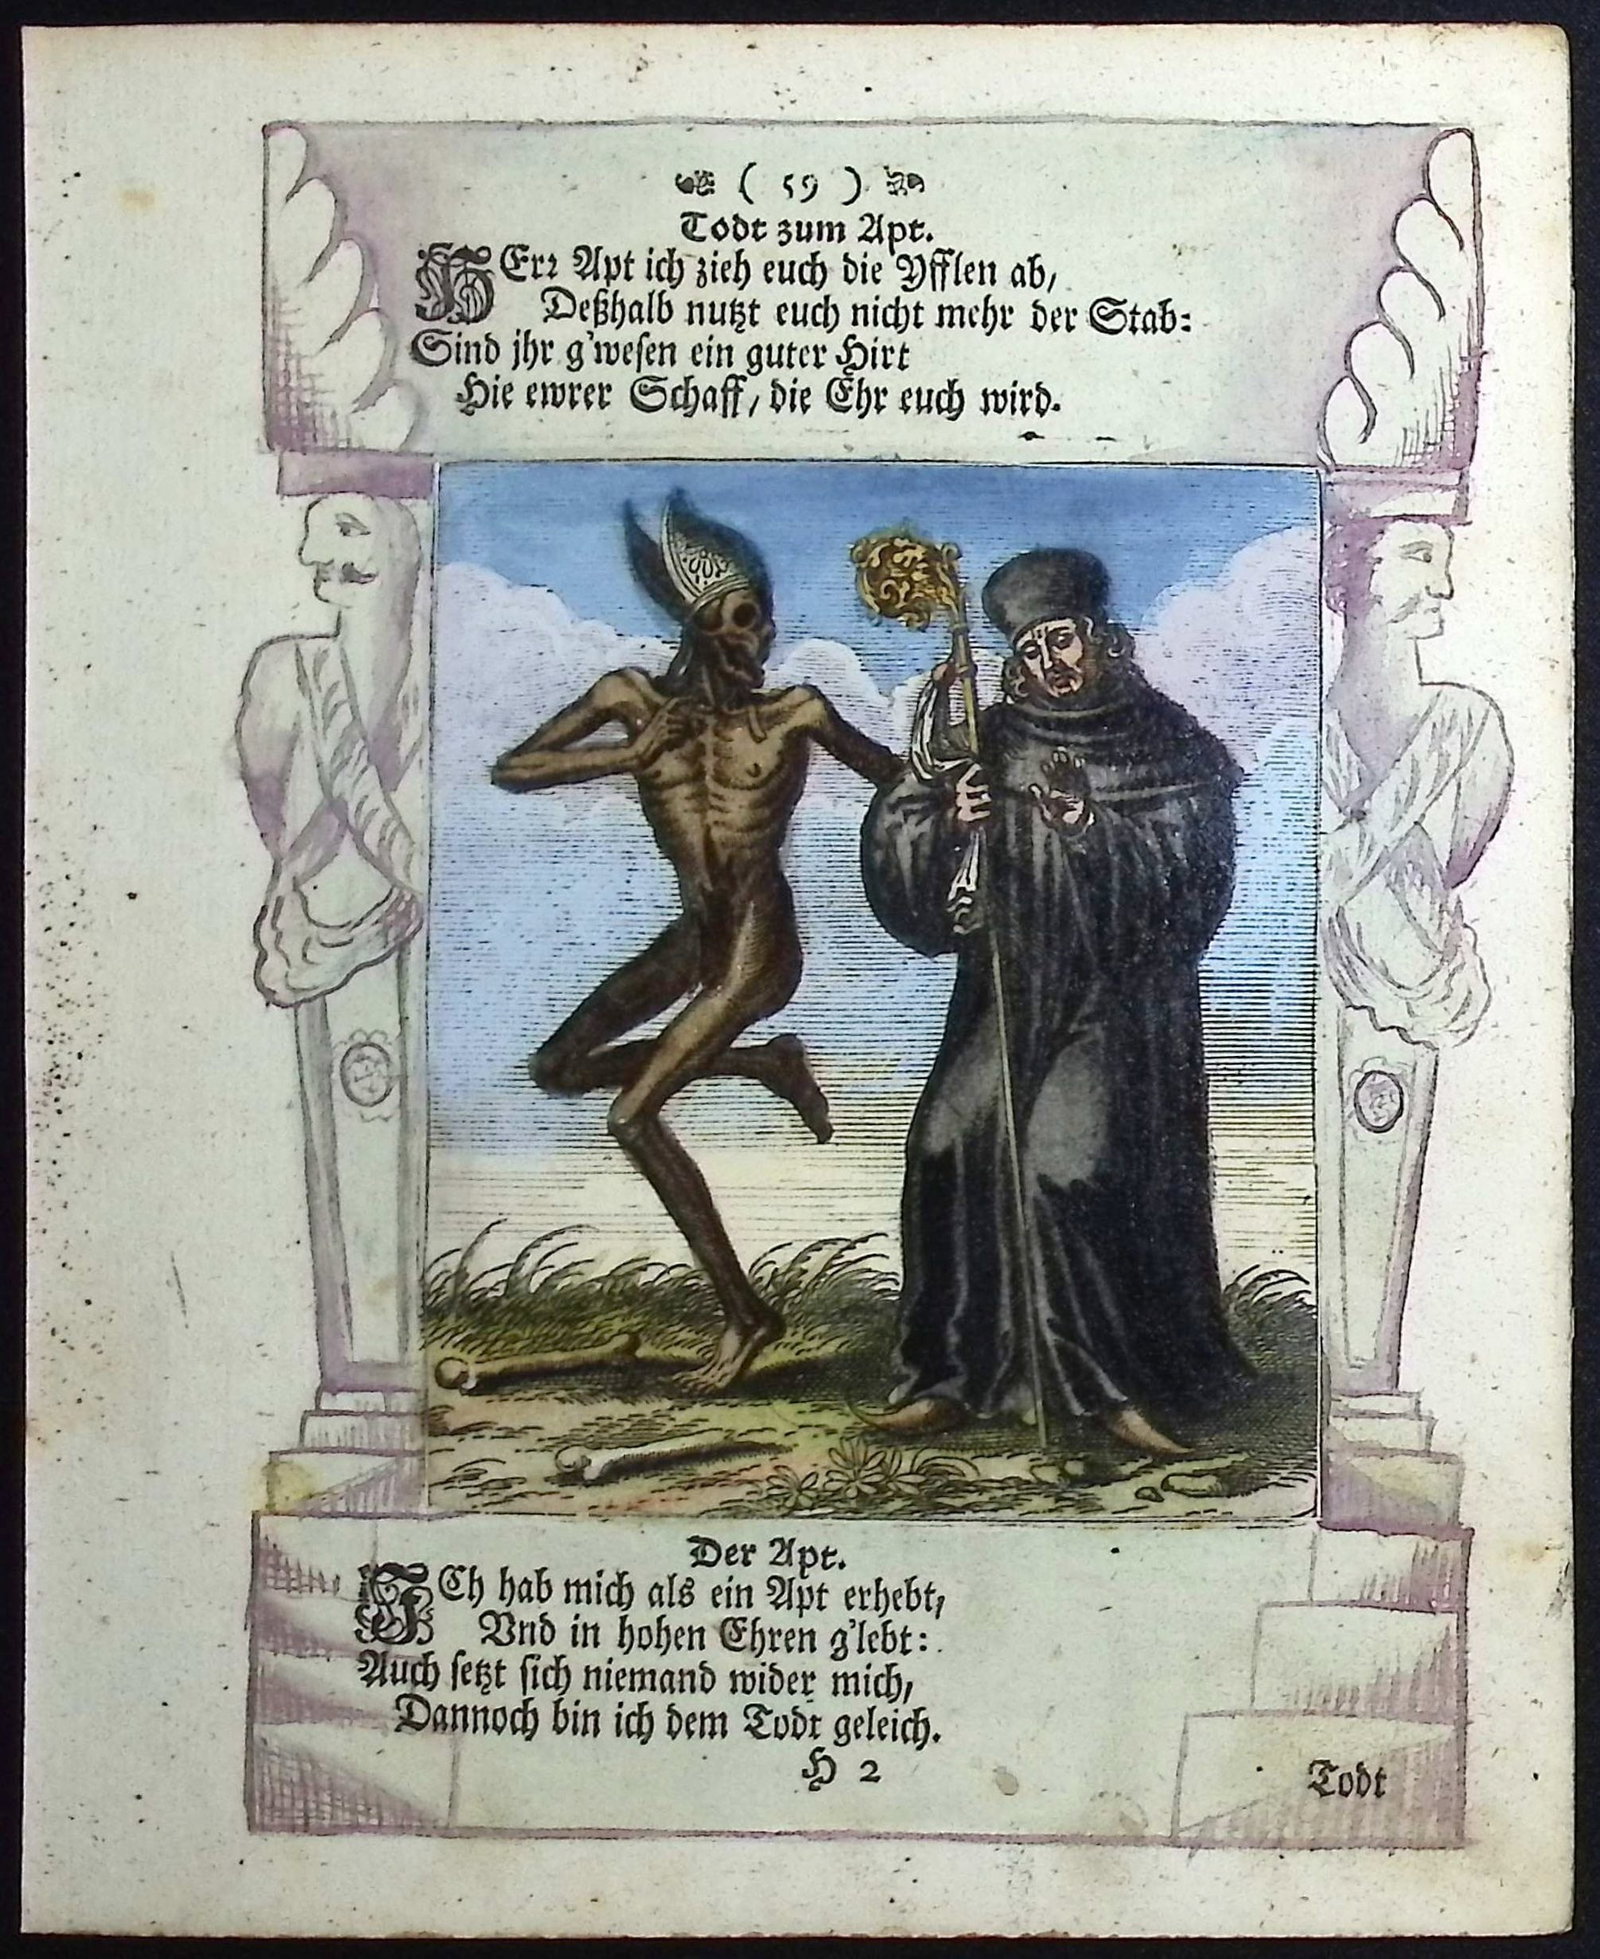 ( 59 )
Todt zum Apt.
HErr Apt ich zieh euch die Yfflen ab,
Deßhalb nutzt euch nicht mehr der Stab:
Sind jhr g'wesen ein guter Hirt
Hie ewrer Schaff, die Ehr euch wird.
Der Apt.
ICh hab mich als ein Apt erhebt,
Vnd in hohen Ehren g'lebt:
Auch setzt sich niemand wider mich,
Dannoch bin ich dem Todt geleich.
H 2
Todt